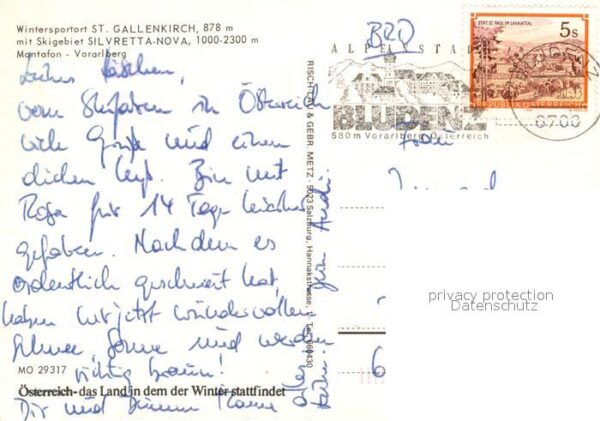 Wintersportort ST. GALLENKIRCH, 878 m
mit Skigebiet SILVRETTA-NOVA, 1000-2300 m
Montafon - Vorarlberg
Liebes Häschen,
vom Skifahren in Österreich
viele Grüße und einen
dicken Bin mit
Rosa für 14 Tage
gefahren. Nachdem es
ordentlich geschneit hat,
haben wir jetzt wundervollen
Schnee, Sonne und werden
richtig braun!
MO 29317
Österreich - das Land in dem der Winter stattfindet
Dir und Deinem
RISCHLAU & GEBR. METZ, 5023 Salzburg, Hannakstrasse, Tel. 660430
BRD
ALPENSTADT
BLUDENZ
580 m Vorarlberg Österreich
STIFT ST. PAUL IM LAVANTTAL
5s
REPUBLIK ÖSTERREICH
6700
Frau
privacy protection
Datenschutz